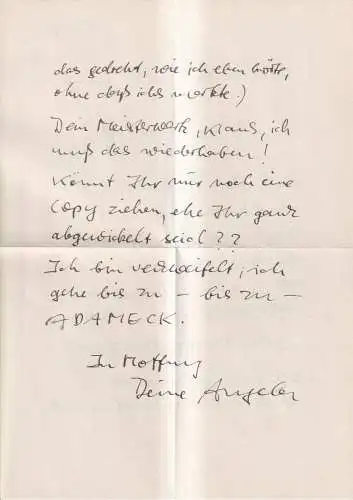 das gedreht, wie ich eben hörte,
ohne daß ichs merkte.)
Dein Meisterwerk, Klaus, ich
muß das wiederhaben!
Könnt Ihr mir noch eine
Copy ziehen, ehe Ihr ganz
abgewickelt seid??
Ich bin verzweifelt, ich
gehe bis zu – bis zu –
ADAMECK.
In Hoffnung
Deine Angela